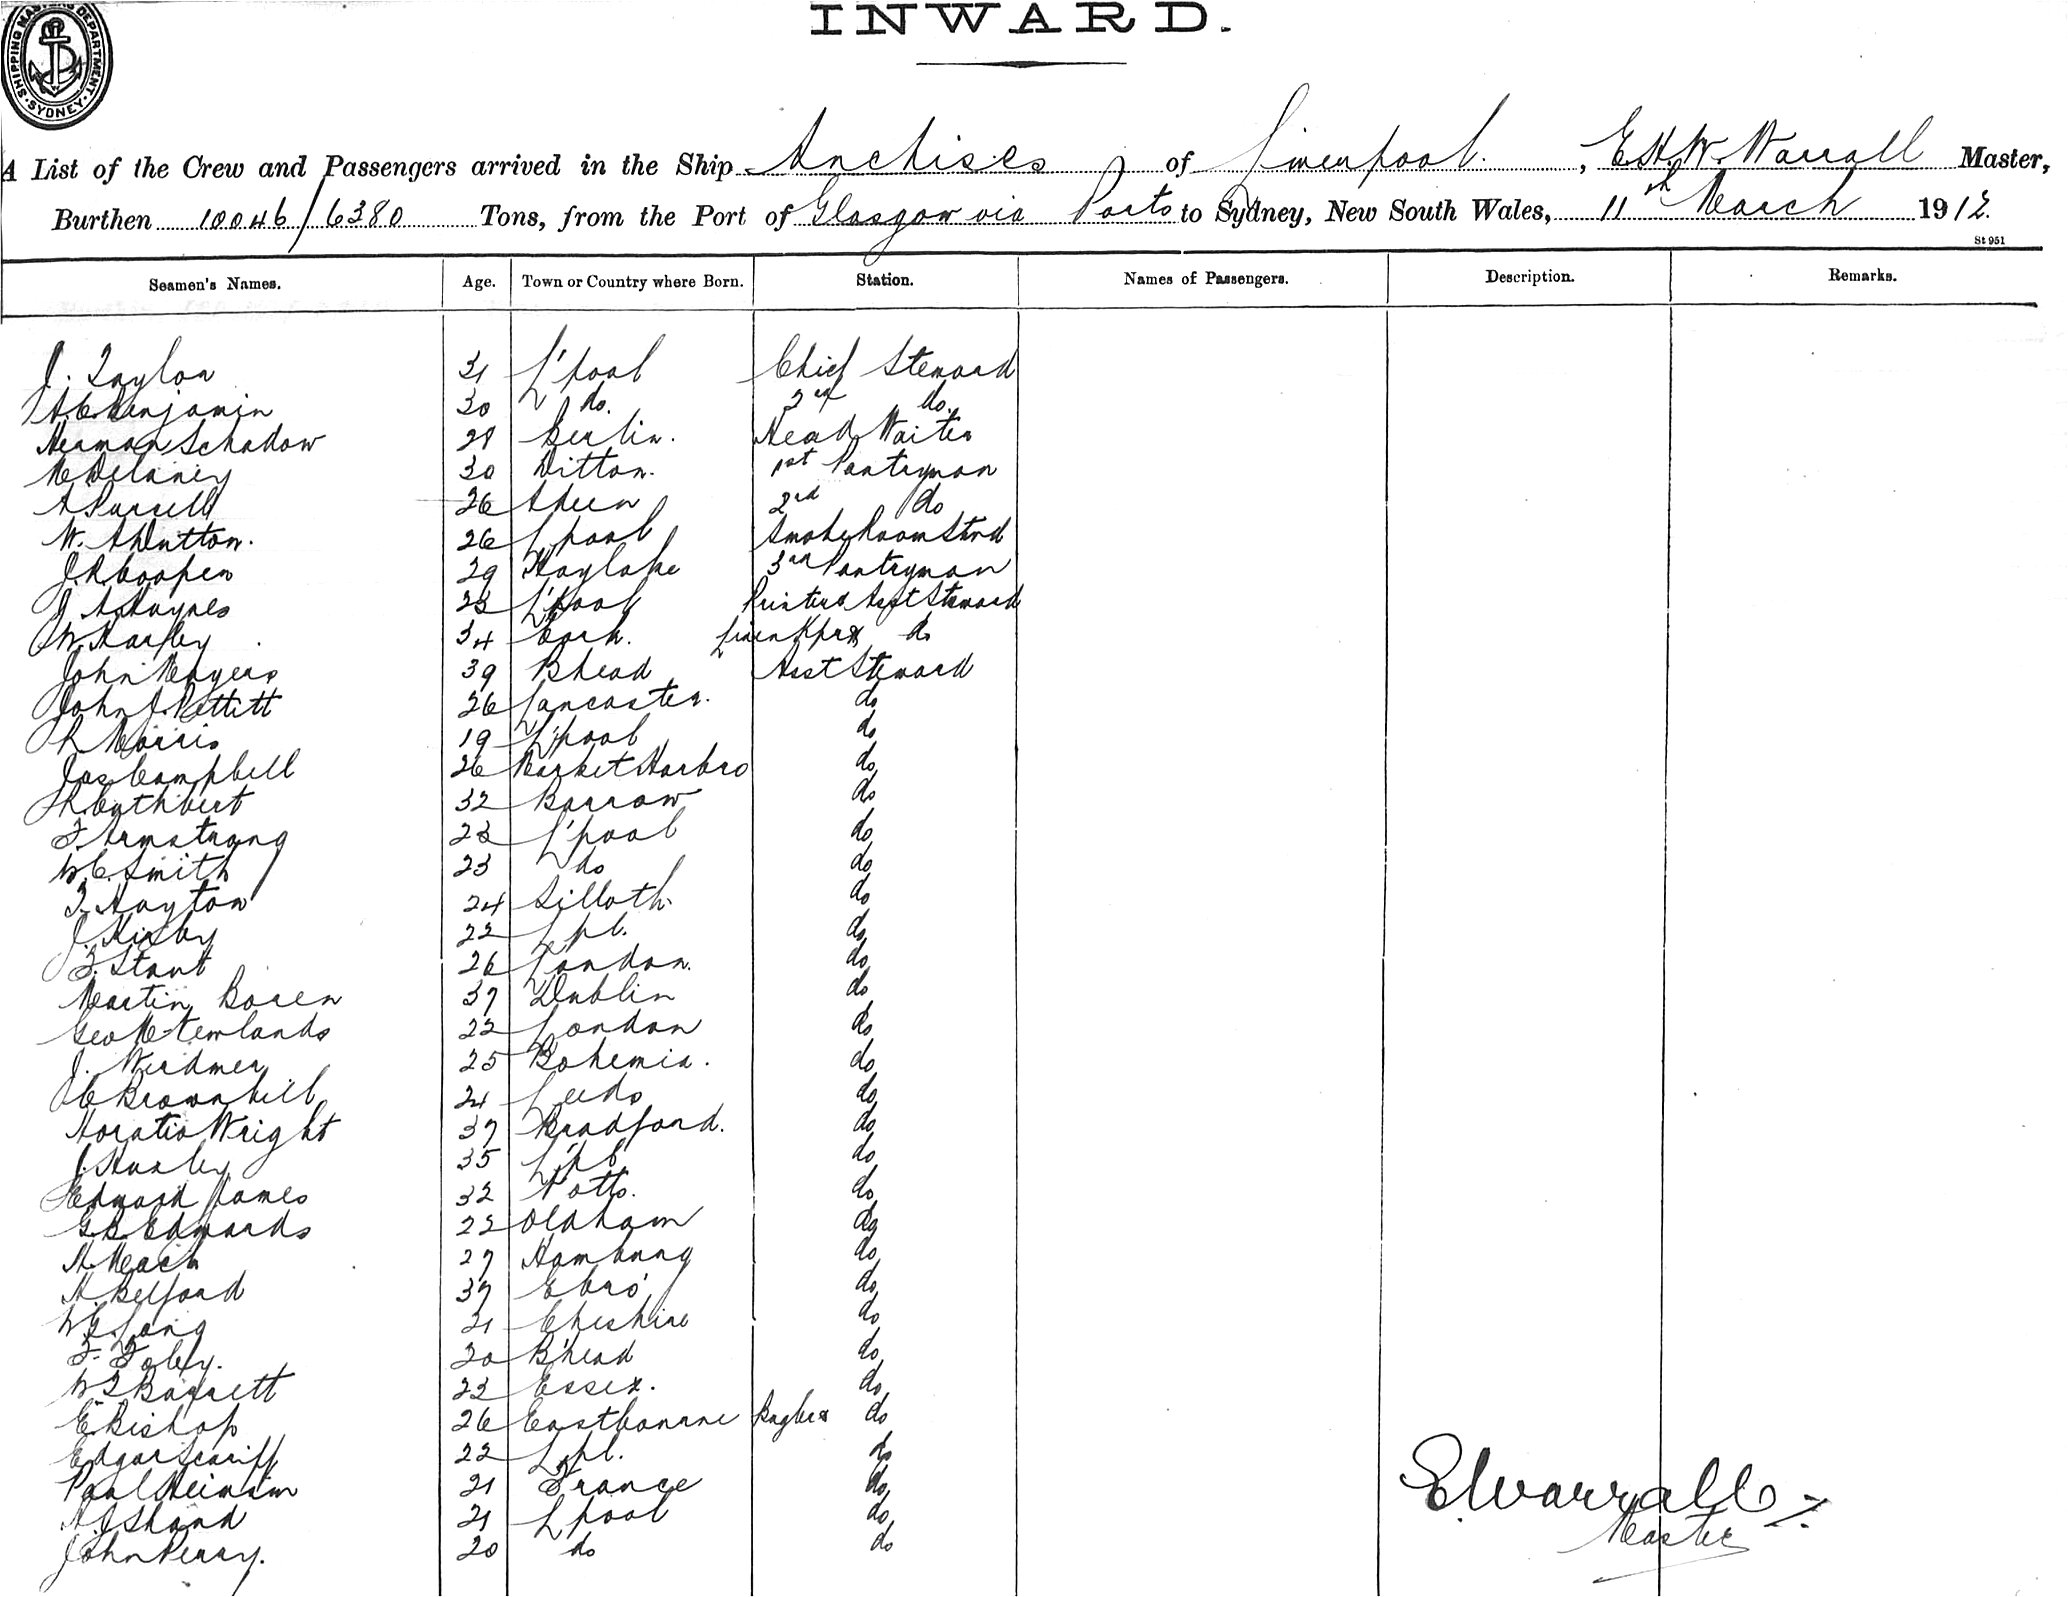 INWARD.
SHIPPING MASTERS DEPARTMENT · SYDNEY ·
A List of the Crew and Passengers arrived in the Ship Anchises of Liverpool. , E.H.W. Warrall Master,
Burthen 10046/6380 Tons, from the Port of Glasgow via Ports to Sydney, New South Wales, 11th March 1912.
St 951
Seamen's Names. Age. Town or Country where Born. Station. Names of Passengers. Description. Remarks.
J. Taylor 31 L'pool Chief Steward
Benjamin 30 do. 2nd do.
Herman Schadow 28 Berlin. Head Waiter
M Delaney 30 Ditton. 1st Pantryman
A Purcell 26 2nd do
W. A Dutton. 26 L'pool Smoke Room Stwd
J.R. Cooper 29 Hoylake 3rd Pantryman
J A Haynes 23 L'pool Printer & Asst Steward
W. Harley 34 Cork. Linen Kpr & do
John Mayers 39 Bhead Asst Steward
John J. Pettitt 26 Lancaster. do
R Morris 19 L'pool do
Jas Campbell 26 Market Harbro do
R. Cuthbert 32 Barrow do
F. Armstrong 23 L'pool do
W.C. Smith 23 do do
T. Hayton 24 Silloth. do
J. Kirby 22 Lpl. do
F. Stant 26 London. do
Martin Boren 37 Dublin do
Geo M Newlands 22 London do
J. Weidmer 25 Bohemia. do
C Brownhill 24 Leeds do
Horatio Wright 37 Bradford. do
J. Huxley 35 L'pl do
Edward James 32 Notts. do
G.B. Edwards 22 Oldham do
H Meack 27 Hamburg do
H. Belford 37 do
W G Long 21 Cheshire do
F. Foley. 20 B'head do
W T Barrett 23 Essex. do
E. Bishop 26 Eastbourne Bugler & do
Edgar Scariff 22 Lpl. do
Paul 21 France do
A.J. Shand 21 L'pool do
John Perry. 20 do do
E Warrall
Master